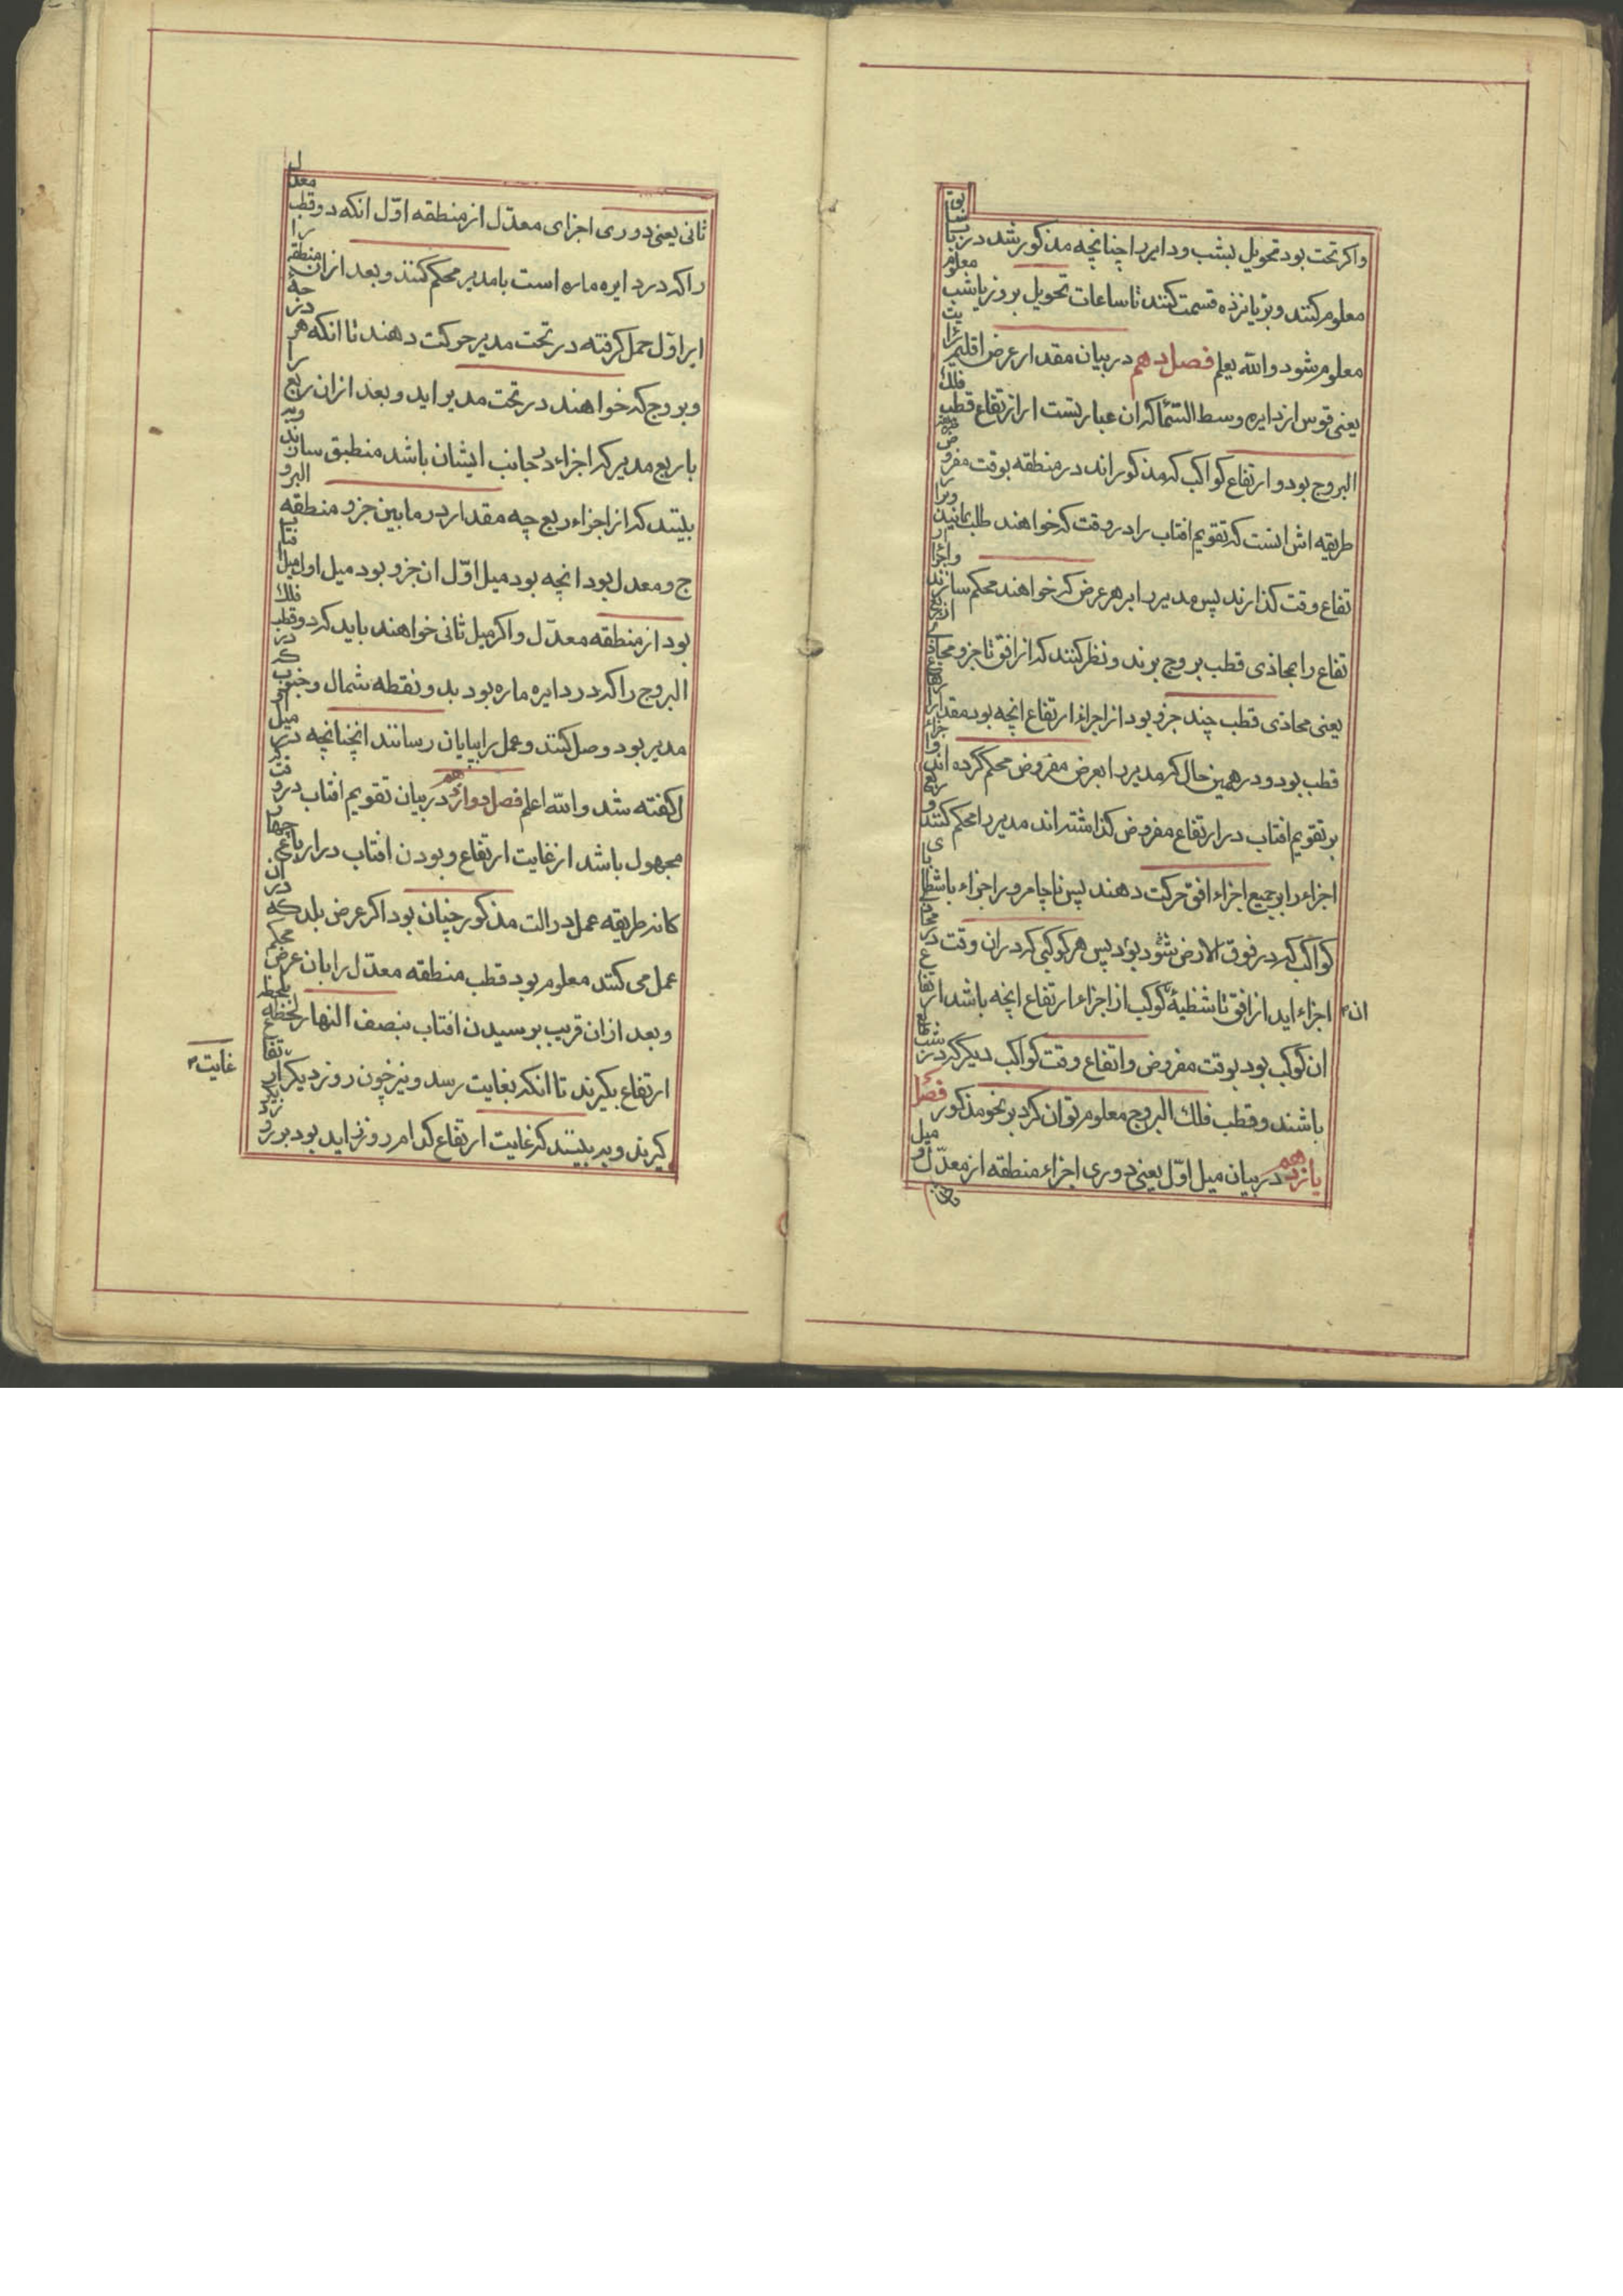 واکر تحت بود تحویل بشب و دایر را چنانچه مذکور شد در باب سابق
معلوم کنند و بر پانزده قسمت کنند تا ساعات تحویل بروز یا شب معلوم
معلوم شود والله یعلم فصل دهم در بیان مقدار عرض اقلیم
یعنی قوس از دایره وسط السما که ان عبارتست از ارتفاع قطب فلک
البروج بود و ارتفاع کواکب که مذکور اند در منطقه بوقت مفروض
طریقه اش انست که تقویم افتاب را در وقت که خواهند طلب نمایند
تفاع وقت کذارند پس مدیر را بر هر عرض که خواهند محکم سازند و اجزاء
تفاع را بمحاذی قطب بروج برند و نظر کنند که از افق تا جزو محاذی
یعنی محاذی قطب چند جزو بود از اجزاء ارتفاع انچه بود مقدار
قطب بود و در همین حال که مدیر را بعرض مفروض محکم کرده اند
بر تقویم افتاب در ارتفاع مفروض کذاشته اند مدیر را محکم کنند و
اجزاء را بر جمیع اجزاء افق حرکت دهند پس ناچار مرور اجزاء با شظایای
کواکب که در فوق الارض شود بود پس هر کوکبی که در ان وقت در محاذی
ان اجزاء اید از افق تا شظیهٔ کوکب از اجزاء ارتفاع انچه باشد ارتفاع
ان کوکب بود بوقت مفروض و اتفاع وقت کواکب دیگر که در
باشند و قطب فلک البروج معلوم توان کرد بر نحو مذکور فصل
یازدهم در بیان میل اوّل یعنی دوری اجزاء منطقه از معدّل و میل
ثانی یعنی دوری اجزای معدّل از منطقه اوّل انکه دو قطب معدل
را که در دایره ماره است با مدیر محکم کنند و بعد از ان منطقه را
ابر اوّل حمل کرفته در تحت مدیر حرکت دهند تا انکه هر درجه
و بروج که خواهند در تحت مدیر اید و بعد از ان ربع را
با ربع مدیر که اجزاء در جانب ایشان باشد منطبق سازند و به
بینند که از اجزاء ربع چه مقدار در ما بین جزو منطقه البرو
ج و معدل بود انچه بود میل اوّل ان جزو بود میل اول
بود از منطقه معدّل و اکر میل ثانی خواهند باید که دو قطب فلک
البروج را که در دایره ماره بود بدو نقطه شمال و جنوب که در
مدیر بود وصل کنند و عمل را بپایان رسانند انچنانچه در میل
ل کفته شد والله اعلم فصل دوازدهم در بیان تقویم افتاب در وقتیکه
مجهول باشد از غایت ارتفاع و بودن افتاب در ارباع چهار
کانه طریقه عمل در الت مذکور چنان بود اکر عرض بلد که در ان
عمل می کنند معلوم بود قطب منطقه معدّل را بان عرض محکم
و بعد از ان قریب برسیدن افتاب بنصف النهار لحظه بلحظه
غایت
ارتفاع بکیرند تا انکه بغایت رسد و نیز چون روز دیگر ارتفاع
کیرند و به بینند که غایت ارتفاع کدام روز زاید بود بروز دیگر